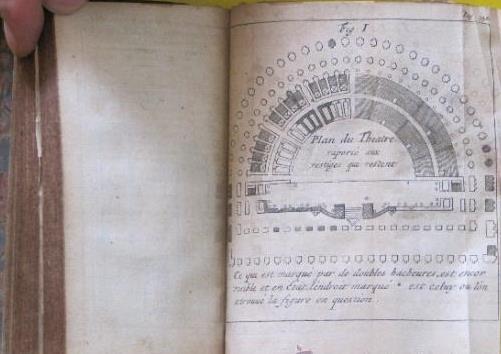 Fig I
Plan du Theatre
raporté aux
vestiges qui restent
Ce qui est marqué par de doubles hacheures, est encor
visible et en Etat. L'endroit marqué * est celuy ou l'on
a trouvé la figure en question.